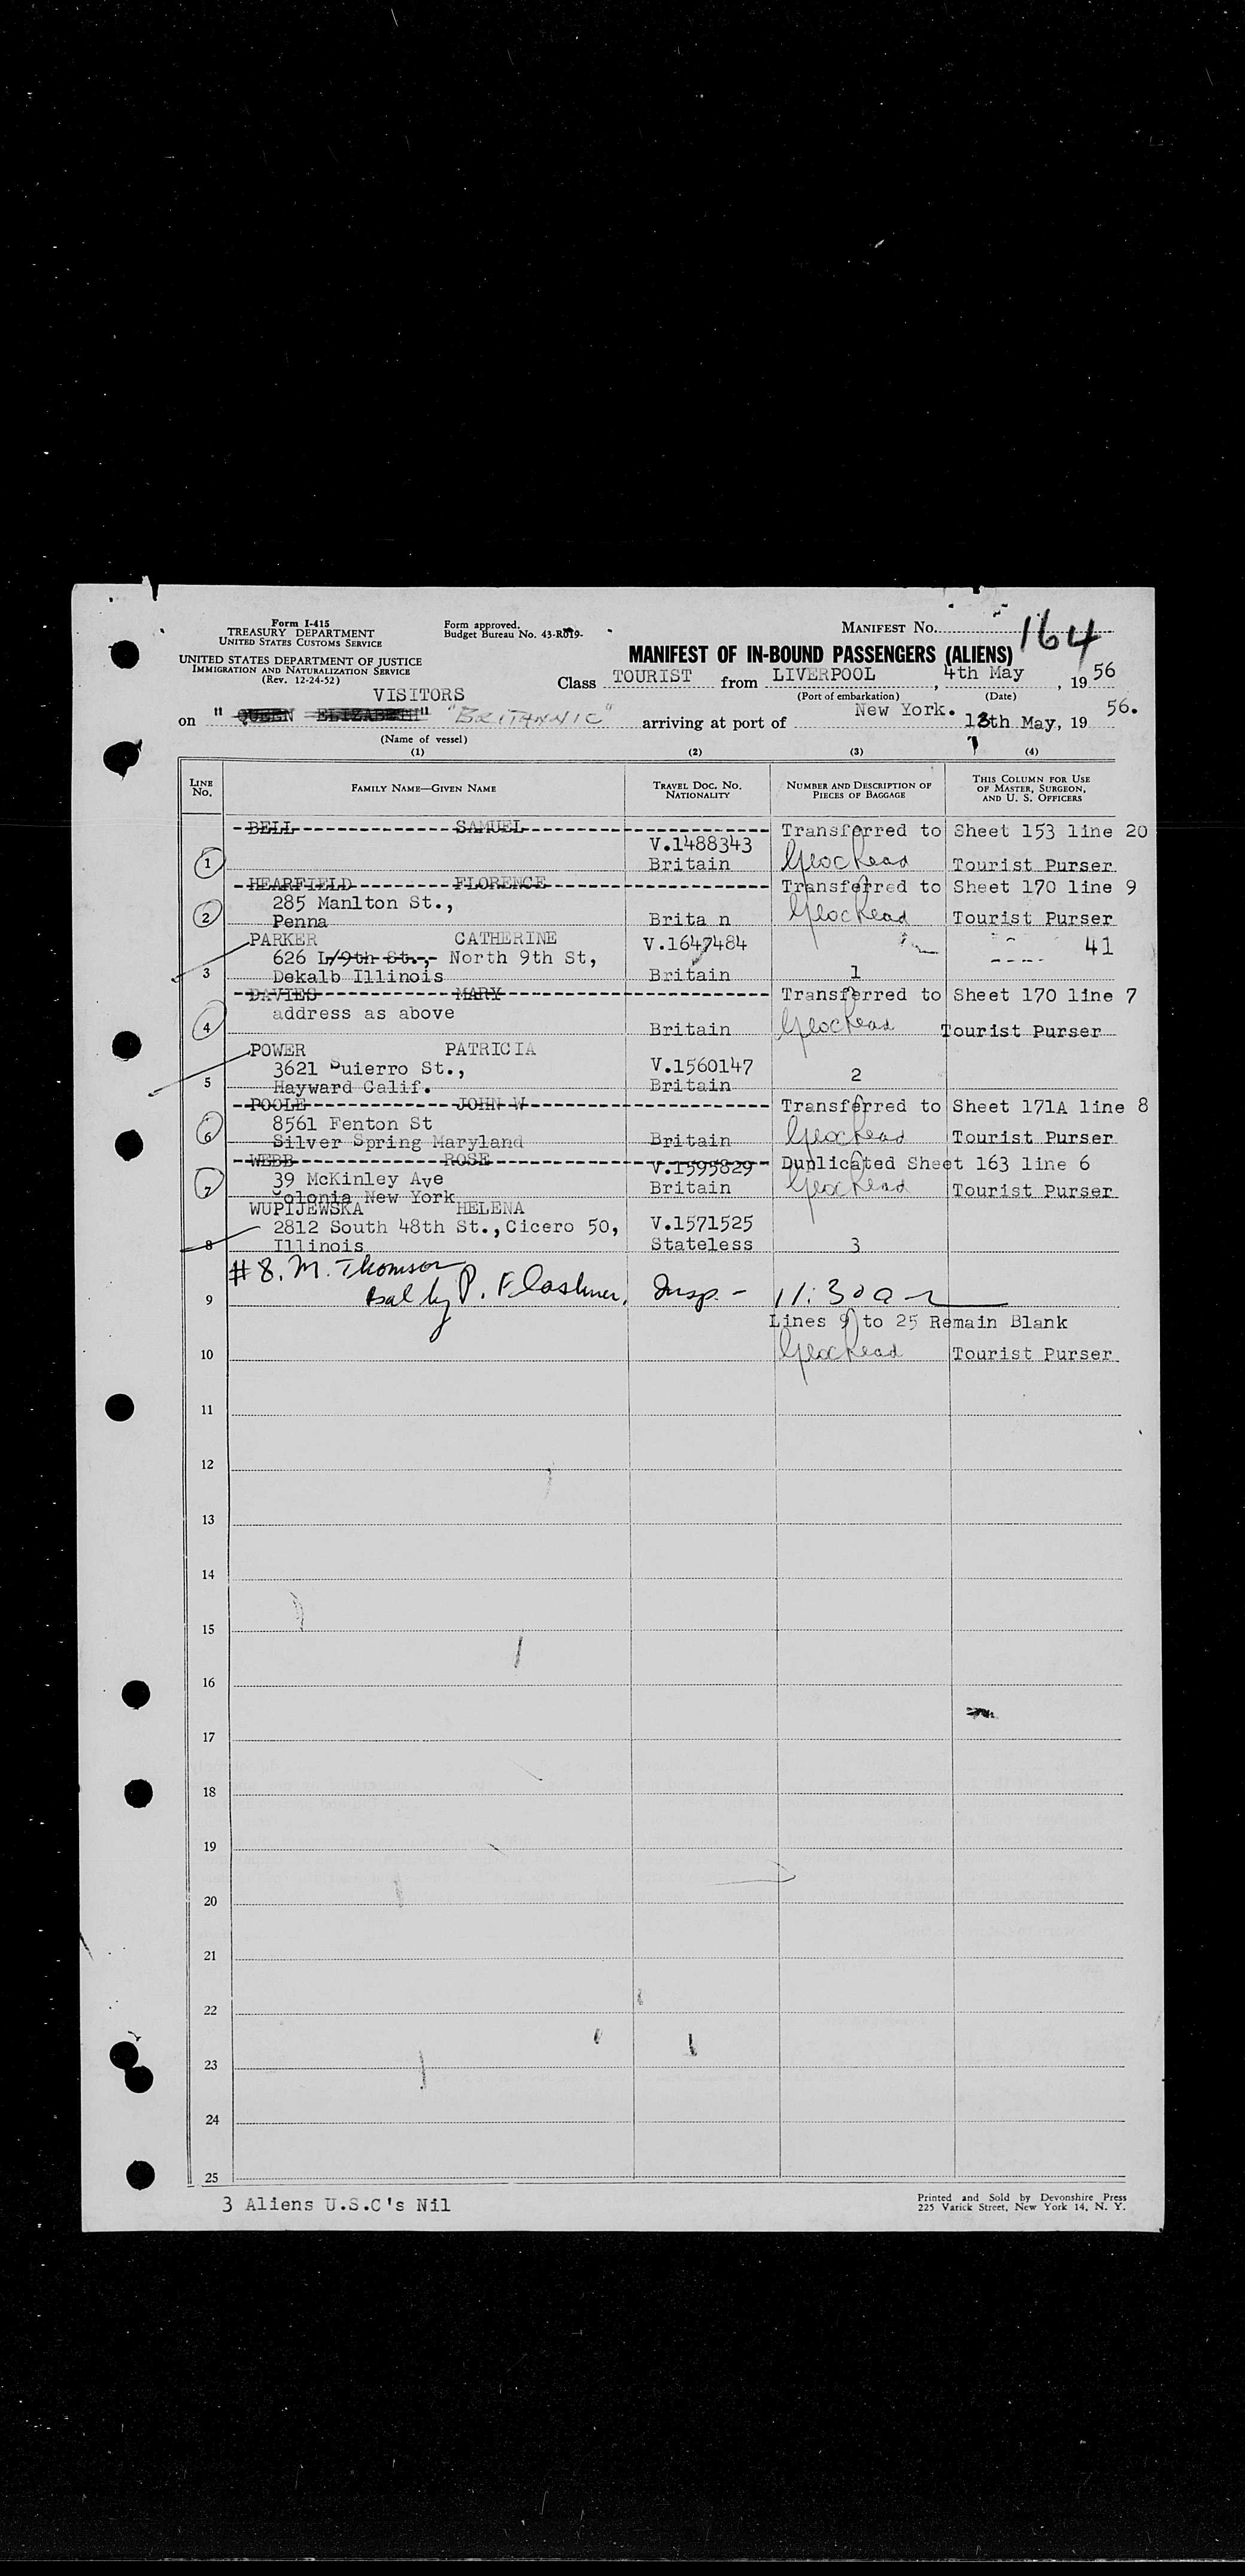 Form I-415
TREASURY DEPARTMENT
UNITED STATES CUSTOMS SERVICE
Form approved.
Budget Bureau No. 43-R019-
MANIFEST No. 164
UNITED STATES DEPARTMENT OF JUSTICE
IMMIGRATION AND NATURALIZATION SERVICE
(Rev. 12-24-52)
MANIFEST OF IN-BOUND PASSENGERS (ALIENS)
VISITORS
Class TOURIST from LIVERPOOL, 4th May, 19 56
(Port of embarkation) (Date)
on "QUEEN ELIZABETH" "BRITANNIC" arriving at port of New York. 13th May, 19 56.
(Name of vessel)
(1) (2) (3) (4)
LINE No. FAMILY NAME—GIVEN NAME TRAVEL DOC. No. NATIONALITY NUMBER AND DESCRIPTION OF PIECES OF BAGGAGE THIS COLUMN FOR USE OF MASTER, SURGEON, AND U. S. OFFICERS
BELL SAMUEL Transferred to Sheet 153 line 20
V.1488343
1 Britain Tourist Purser
HEARFIELD FLORENCE Transferred to Sheet 170 line 9
285 Manlton St.,
2 Penna Brita n Tourist Purser
PARKER CATHERINE V.1647484 41
626 L/9th St., North 9th St,
3 Dekalb Illinois Britain 1
DAVIES MARY Transferred to Sheet 170 line 7
address as above
4 Britain Tourist Purser
POWER PATRICIA V.1560147
3621 Quierro St., 2
5 Hayward Calif. Britain
POOLE JOHN W Transferred to Sheet 171A line 8
8561 Fenton St
6 Silver Spring Maryland Britain Tourist Purser
WEBB ROSE V.1595829 Duplicated Sheet 163 line 6
39 McKinley Ave
7 Colonia New York Britain Tourist Purser
WUPIJEWSKA HELENA
2812 South 48th St., Cicero 50, V.1571525
8 Illinois Stateless 3
#8. M. Thomson
9 Bal by P. Flashner, Insp. - 11:30 am
Lines 9 to 25 Remain Blank
10 Tourist Purser
11
12
13
14
15
16
17
18
19
20
21
22
23
24
25
3 Aliens U.S.C's Nil
Printed and Sold by Devonshire Press
225 Varick Street, New York 14, N. Y.